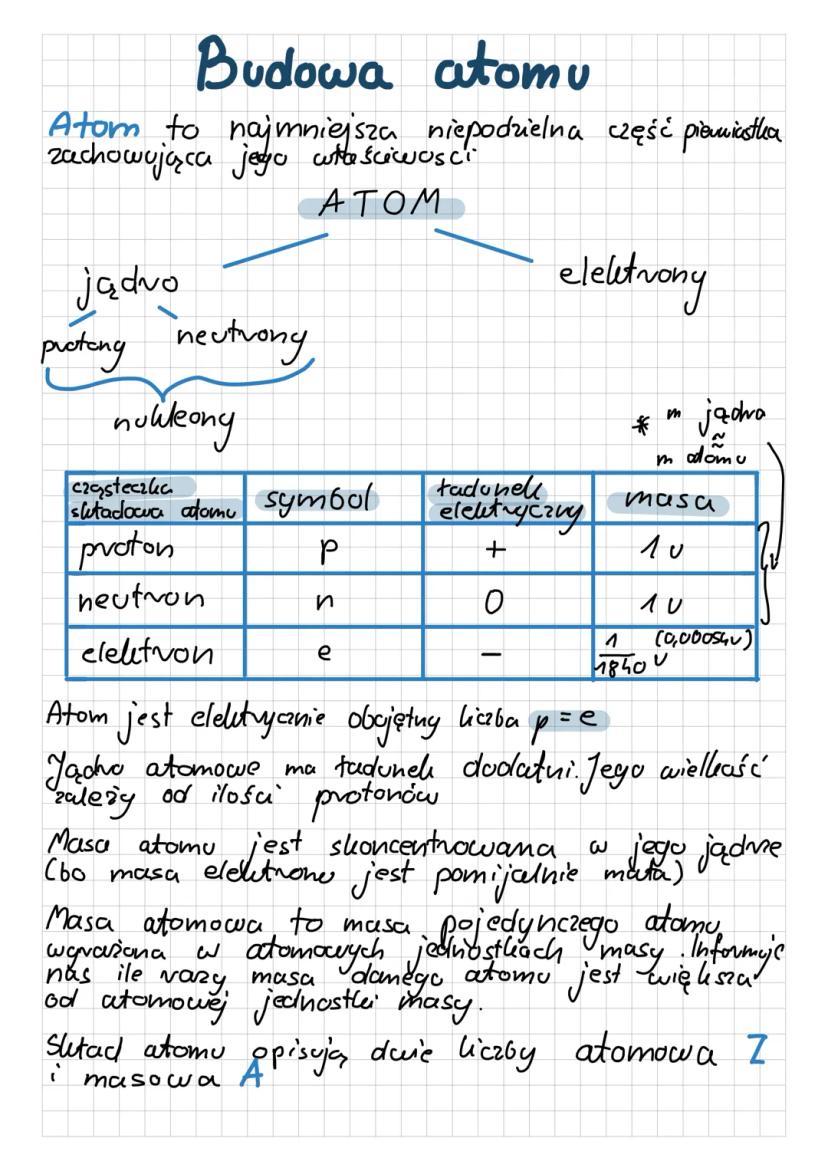 Budowa atomu
Atom to najmniejsza niepodzielna część pierwiastka
zachowująca jego właściwości
ATOM
jądro
elektrony
protony
neutrony
nukleony
* m jądra
≈
m atomu
cząsteczka składowa atomu symbol ładunek elektryczny masa
proton p + 1 u
neutron n 0 1 u
elektron e – 1/1840 u (0,00054u)
Atom jest elektrycznie obojętny liczba p = e
Jądro atomowe ma ładunek dodatni. Jego wielkość
zależy od ilości protonów
Masa atomu jest skoncentrowana w jego jądrze
(bo masa elektronu jest pomijalnie mała)
Masa atomowa to masa pojedynczego atomu
wyrażona w atomowych jednostkach masy. Informuje
nas ile razy masa danego atomu jest większa
od atomowej jednostki masy.
Skład atomu opisują dwie liczby atomowa Z
i masowa A